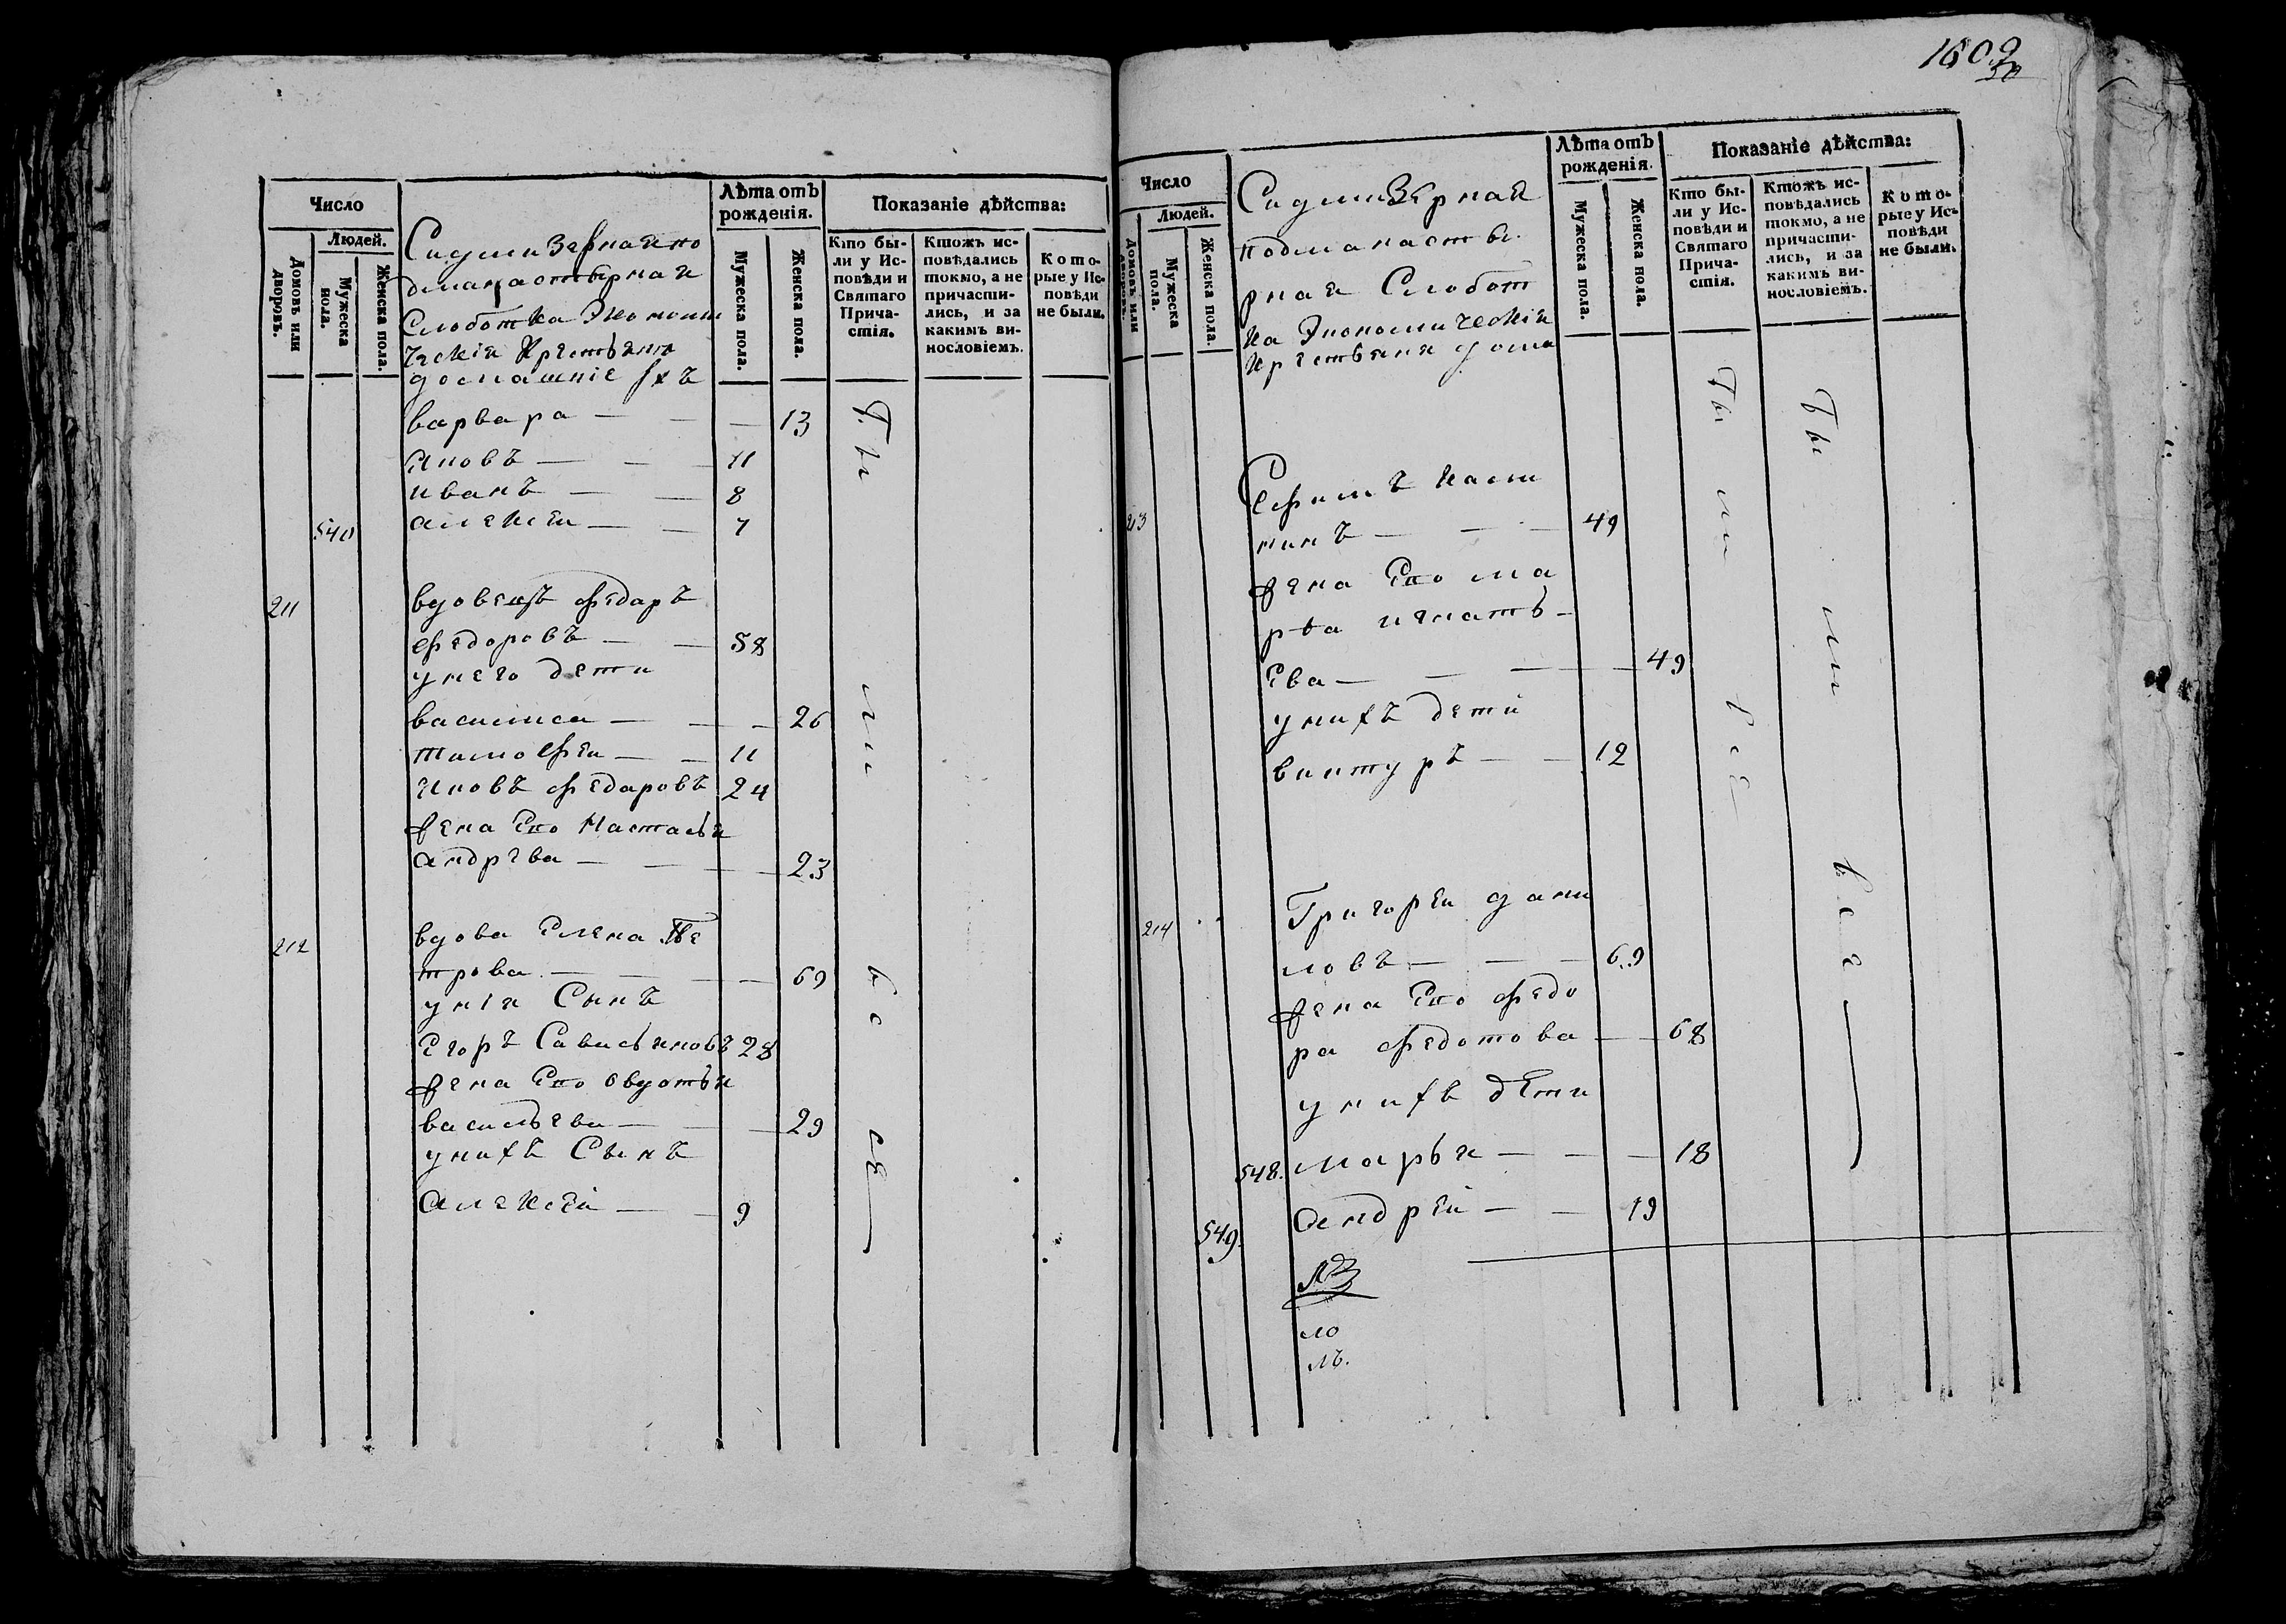 Число
Людей.
Домовъ или дворовъ.
Мужеска пола.
Женска пола.
Лѣта отъ рожденія.
Мужеска пола.
Женска пола.
Показаніе дѣйства:
Кто бы-
ли у Ис-
повѣди и
Святаго
Прича-
стія.
Ктожъ ис-
повѣдались
токмо, а не
причасти-
лись, и за
какимъ ви-
нословіемъ.
Кото-
рые у Ис-
повѣди
не были.
Сидми Зернаяпо
дманастырная
Слоботка Экономи
ческія Крестьяня
домашніе ихъ
варвара — — — 13
Яковъ — — 11
иванъ — — 8
540 алеКсеи — — 7
211 вдовецъ федаръ
федоровъ — — 58
унего дети
василиса — — — 26
тимофеи — — 11
Яковъ федаровъ 24
жена Его Настасья
андрева — — — 23
212 вдова Елена Пе
трова — — — 69
унія Сынъ
Егоръ Савасьяновъ 28
жена Его овдотья
васильева — — 29
унихъ Сынъ
АлеКсеи — — 9
Бы
ли
всѣ
1609
50
Число
Людей.
Домовъ или дворовъ.
Мужеска пола.
Женска пола.
Лѣта отъ
рожденія.
Мужеска пола.
Женска пола.
Показаніе дѣйства:
Кто бы-
ли у Ис-
повѣди и
Святаго
Прича-
стія.
Ктожъ ис-
повѣдались
токмо, а не
причасти-
лись, и за
какимъ ви-
нословіемъ.
Кото-
рые у Ис-
повѣди
не были.
Сидми Зерная
подманасты
рная Слобот
ка Экономическія
крестьяня дома
213 Ефимъ
— — 49
жена Его ма
рѳа игнать-
Ева — — — 49
унихъ дети
виктуръ — — 12
214 Григореи дани
ловъ — — — 69
жена Его федо
ра федотова — — 68
унихъ дети
548. марья — — — 18
549. Андреи — — 19
ло
лъ.
Бы
ли
всѣ
Бы
ли
все